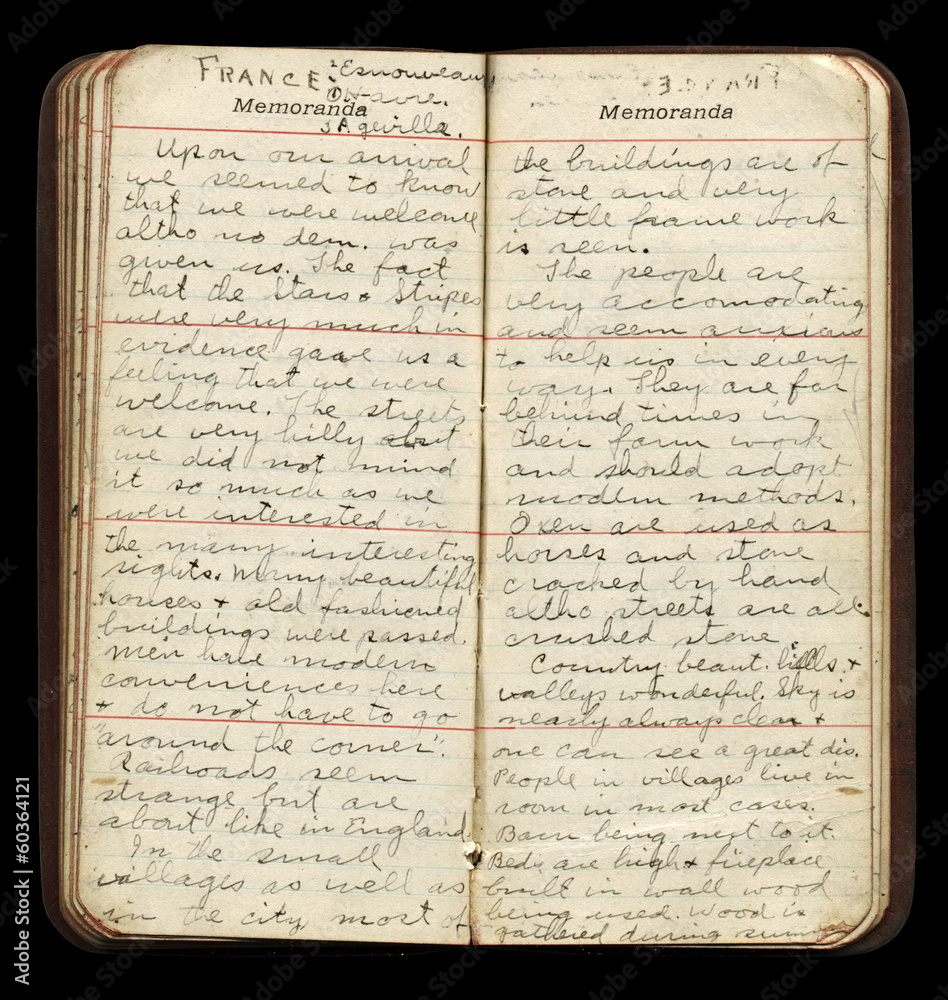 FRANCE: 2 Esnouveaux
① Havre.
Memoranda
3 A. gevilla.
Upon our arrival
we seemed to know
that we were welcome
altho no dem. was
given us. The fact
that the Stars & Stripes
were very much in
evidence gave us a
feeling that we were
welcome. The streets
are very hilly but
we did not mind
it so much as we
were interested in
the many interesting
sights. Many beautiful
houses & old fashioned
buildings were passed.
Men have modern
conveniences here
& do not have to go
"around the corner".
Railroads seem
strange but are
about like in England
In the small
villages as well as
in the city most of
Memoranda
the buildings are of
stone and very
little frame work
is seen.
The people are
very accomodating
and seem anxious
to help us in every
way. They are far
behind times in
their farm work
and should adopt
modern methods.
Oxen are used as
horses and stone
cracked by hand
altho streets are all
crushed stone.
Country beaut. hills &
valleys wonderful. Sky is
nearly always clear &
one can see a great dis.
People in villages live in
room in most cases.
Barn being next to it.
Beds are high & fireplace
built in wall wood
being used. Wood is
gathered during
Adobe Stock | #60364121